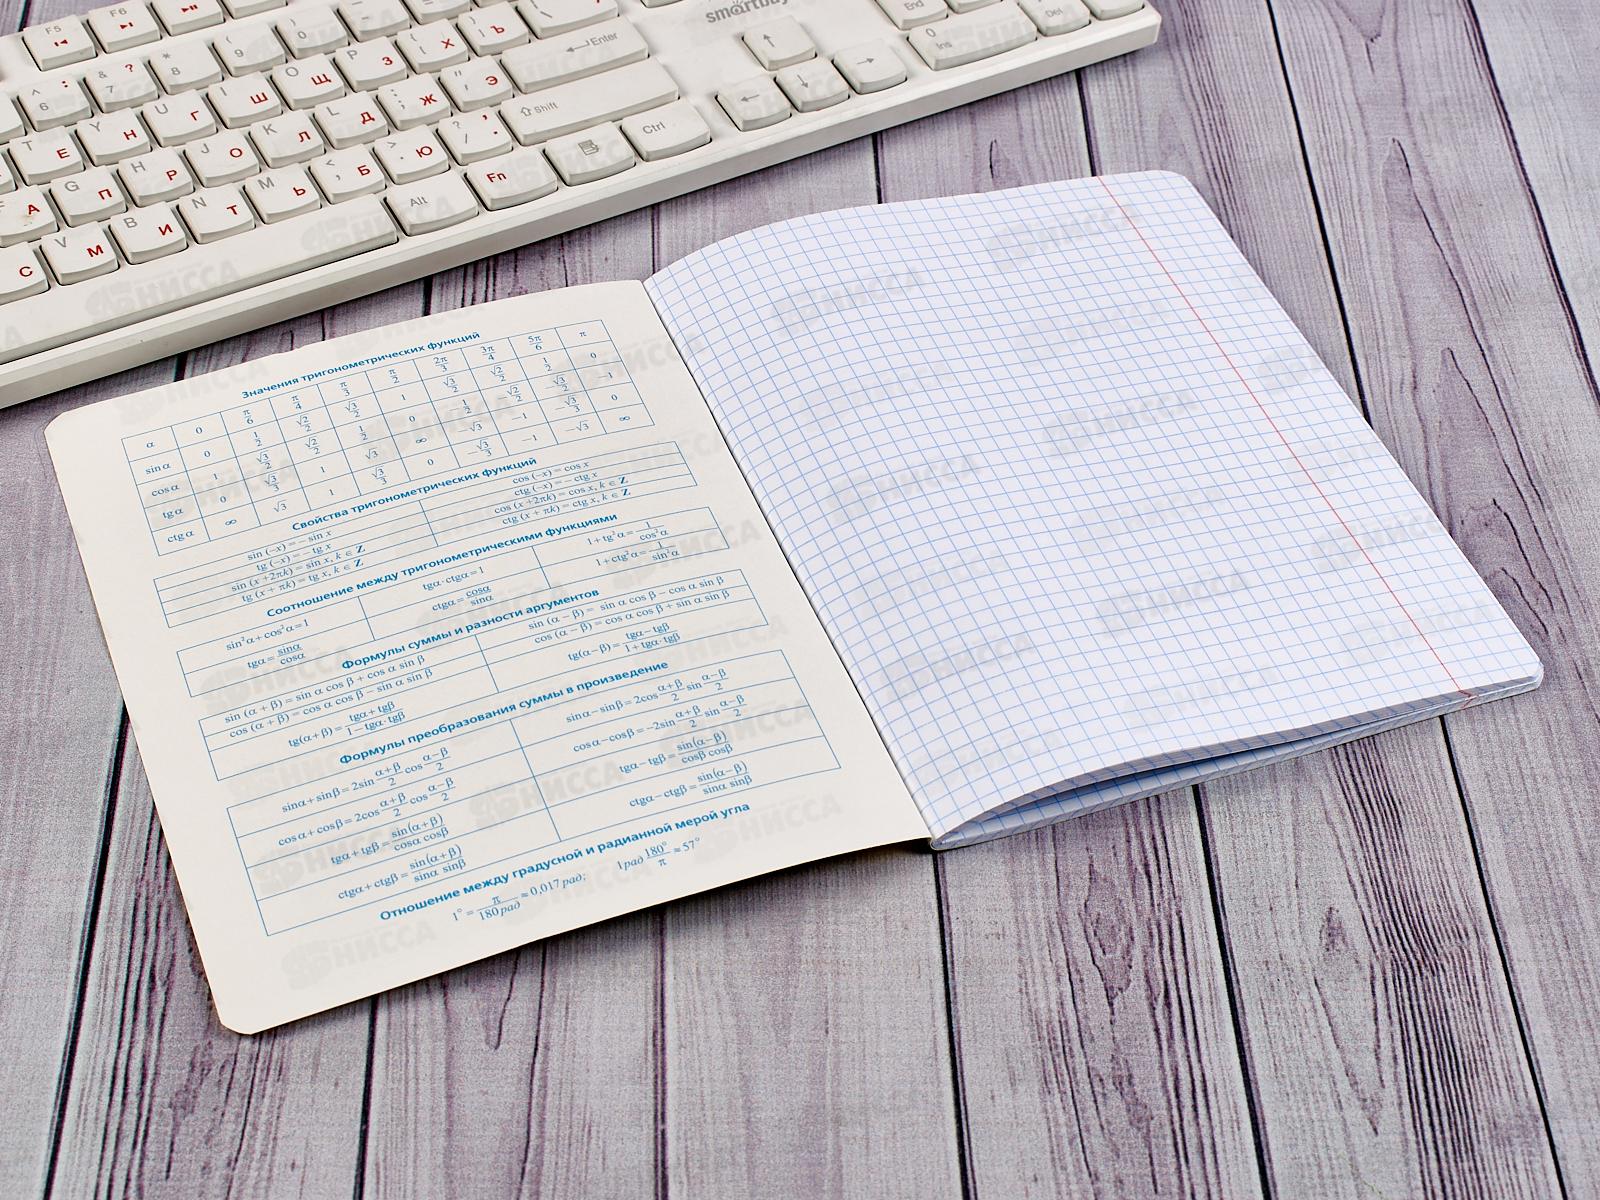 smartbuy
F5
F6
End
Ins
Del
Enter
Shift
Ctrl
Alt
Fn
Значения тригонометрических функций
α 0 π/6 π/4 π/3 π/2 2π/3 3π/4 5π/6 π
sin α 0 1/2 √2/2 √3/2 1 √3/2 √2/2 1/2 0
cos α 1 √3/2 √2/2 1/2 0
tg α 0 √3/3 1
ctg α ∞ √3 1 √3/3 0 -√3/3 −1 −√3 ∞
Свойства тригонометрических функций
sin (−x) = − sin x cos (−x) = cos x
tg (−x) = − tg x ctg (−x) = − ctg x
sin (x +2πk) = sin x, k ∈ Z cos (x +2πk) = cos x, k ∈ Z
tg (x + πk) = tg x, k ∈ Z ctg (x + πk) = ctg x, k ∈ Z
Соотношение между тригонометрическими функциями
sin²α+cos²α=1 tgα·ctgα=1 1+tg²α= 1/cos²α
tgα= sinα/cosα ctgα= cosα/sinα 1+ctg²α= 1/sin²α
Формулы суммы и разности аргументов
sin (α + β) = sin α cos β + cos α sin β sin (α − β) = sin α cos β − cos α sin β
cos (α + β) = cos α cos β − sin α sin β cos (α − β) = cos α cos β + sin α sin β
tg(α+β)= tgα+tgβ/1−tgα·tgβ tg(α−β)= tgα−tgβ/1+tgα·tgβ
Формулы преобразования суммы в произведение
sinα+sinβ=2sin α+β/2 cos α−β/2 sinα−sinβ=2cos α+β/2 sin α−β/2
cosα+cosβ=2cos α+β/2 cos α−β/2 cosα−cosβ=-2sin α+β/2 sin α−β/2
tgα+tgβ= sin(α+β)/cosα cosβ tgα−tgβ= sin(α−β)/cosβ cosβ
ctgα+ctgβ= sin(α+β)/sinα sinβ ctgα−ctgβ= sin(α−β)/sinα sinβ
Отношение между градусной и радианной мерой угла
1°= π/180 рад ≈0,017 рад; 1рад 180°/π ≈57°
НИССА